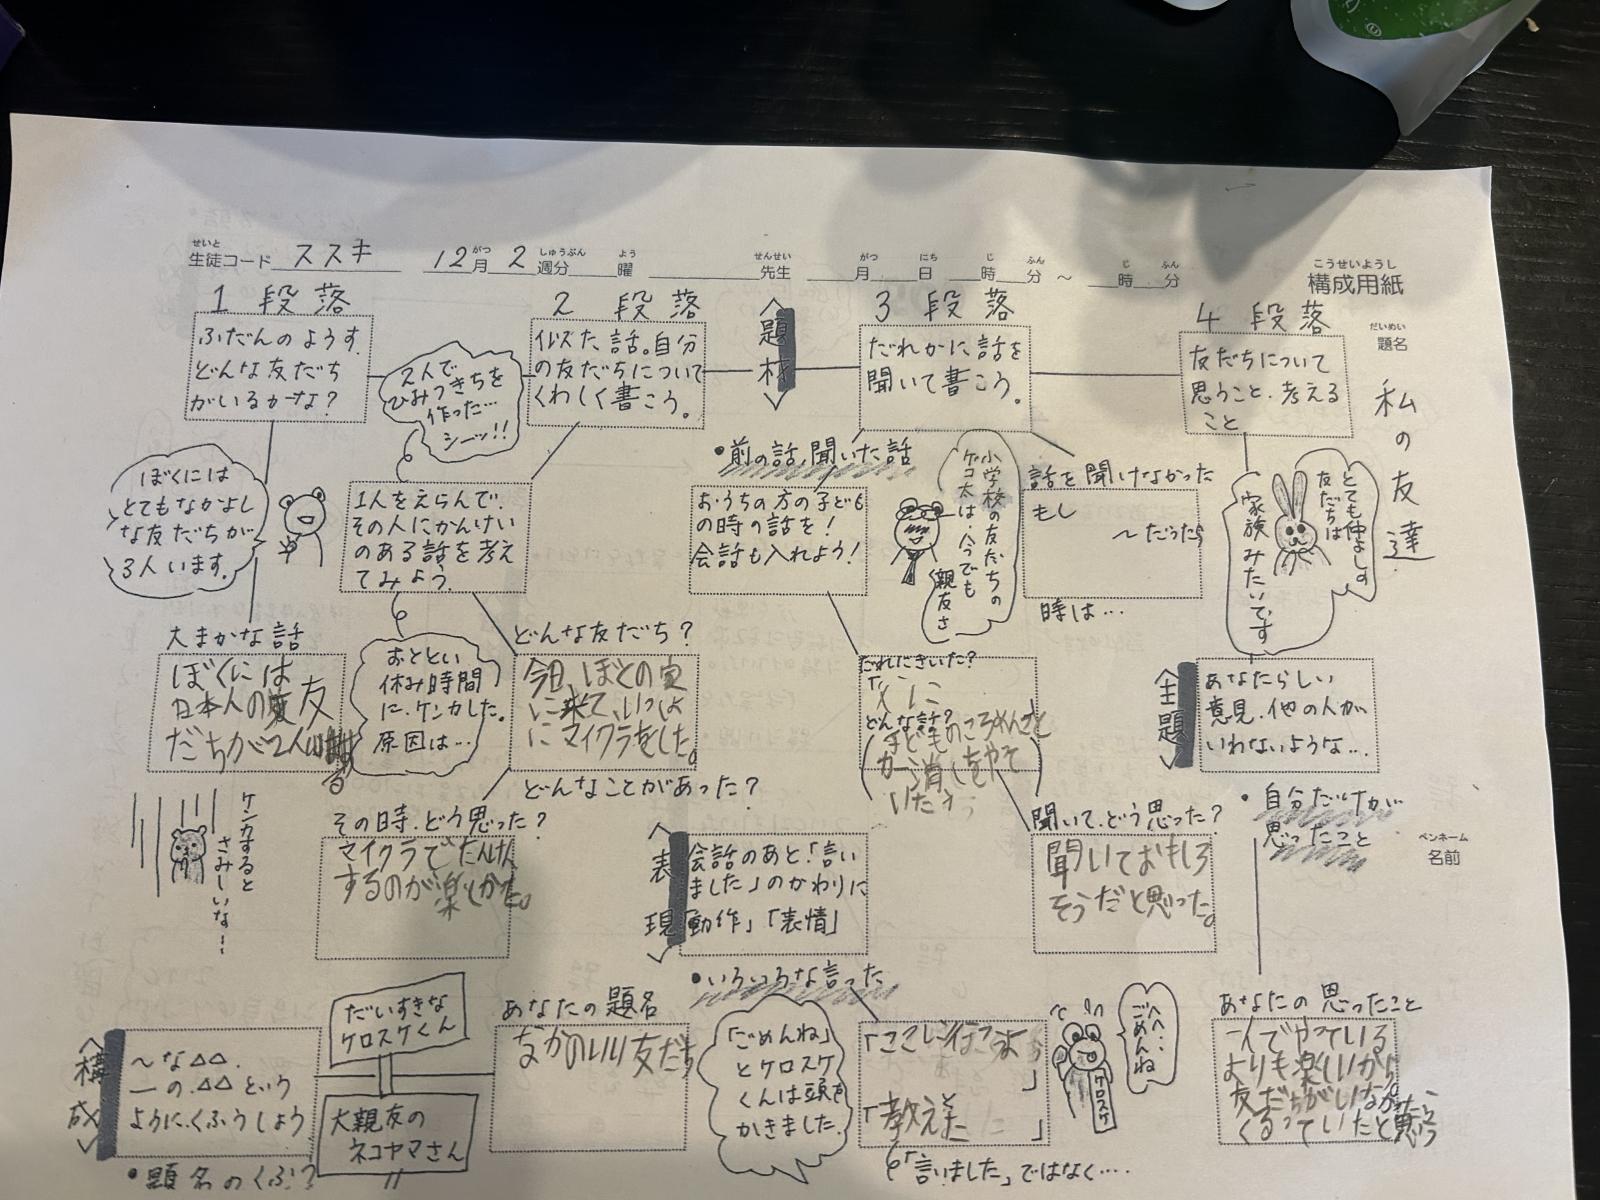 せいと
生徒コード ススキ
12月 2週分 曜
がつ しゅうぶん よう
先生 月 日 時 分 ~ 時 分
せんせい がつ にち じ ふん じ ふん
こうせいようし
構成用紙
だいめい
題名
私の友達
ペンネーム
名前
1段落
ふだんのようす.
どんな友だち
がいるかな?
ぼくには
とてもなかよし
な友だちが
3人います.
大まかな話
ぼくには
日本人の友
だちが2人
ケンカすると
さみしいな…
2段落
似た話。自分
の友だちについて
くわしく書こう。
2人で
ひみつきちを
作った…
シーッ!!
1人をえらんで.
その人にかんけい
のある話を考え
てみよう.
おととい
休み時間
に、ケンカした。
原因は…
どんな友だち?
今日、ぼくの家
に来て、いっしょ
にマイクラをした。
どんなことがあった?
その時、どう思った?
マイクラでたんけん
するのが楽しかた。
<題材>
3段落
だれかに話を
聞いて書こう。
・前の話、聞いた話
おうちの方の子ども
の時の話を!
会話も入れよう!
小学校の友だちの
ケコ太は、今でも
親友さ
話を聞けなかった
もし
~だったら
時は…
だれにきいた?
どんな話?
聞いて、どう思った?
聞いておもしろ
そうだと思った。
4段落
友だちについて
思うこと、考える
こと
とても仲よしす
友だちは
家族みたいです
<主題>
あなたらしい
意見、他の人が
いわないような…
・自分だけが
思ったこと
あなたの思ったこと
一人でやっている
よりも楽しいから。
<表現>
会話のあと、「言い
ました」のかわりに
「動作」「表情」
・いろいろな言った
「ごめんね」
とケロスケ
くんは頭を
かきました.
「ここに行こうよ
」
「教えた
」
「言いました」ではなく…
へへ…
ごめんね
ケロスケ
<構成>
~な△△
―の、△△という
ように、くふうしよう
・題名のくふう
だいすきな
ケロスケくん
大親友の
ネコヤマさん
あなたの題名
なかのいい友だち